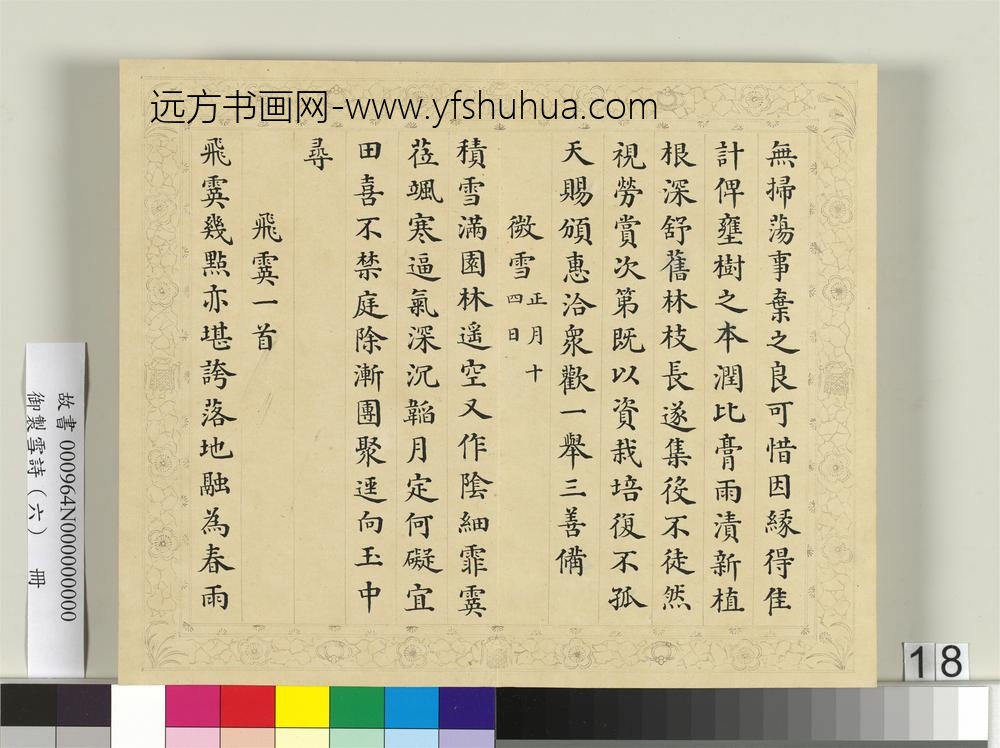 远方书画网-www.yfshuhua.com
無掃蕩事棄之良可惜因緣得佳
計俾壅樹之本潤比膏雨漬新植
根深舒舊林枝長遂集役不徒然
視勞賞次第既以資栽培復不孤
天賜頒惠洽衆歡一舉三善備
微雪正月十四日
積雪滿園林遥空又作陰細霏霙
莅颯寒逼氣深沉韜月定何礙宜
田喜不禁庭除漸團聚逕向玉中
尋
飛霙一首
飛霙幾點亦堪誇落地融為春雨
故書 000964N000000000
御製雪詩（六） 冊
18